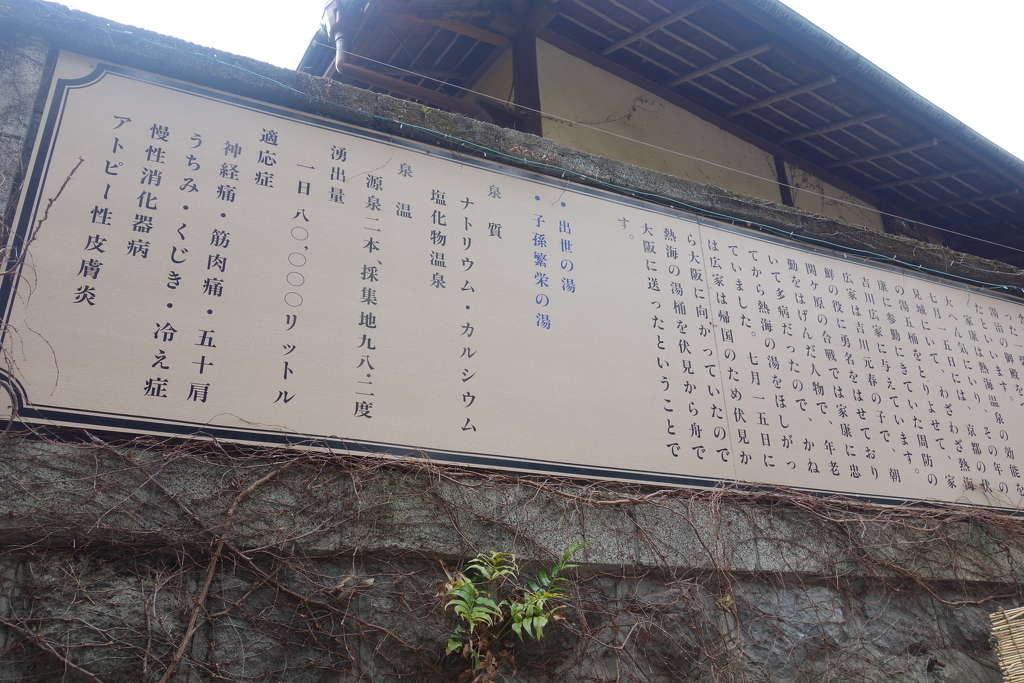 たといいます。
家康は熱海温泉の効能を
大へん気にいり、その年の
七月一五日には、京都の伏
見城にいて、わざわざ熱海
の湯五桶をとりよせて、家
康に参勤にきていた周防の
吉川広家に与えています。
広家は吉川元春の子で、朝
鮮の役に勇名をはせており
関ヶ原の合戦では家康に忠
勤をはげんだ人物で、年老
いて多病だったので、かね
てから熱海の湯をほしがっ
ていました。七月一五日に
は広家は帰国のため伏見か
ら大阪に向かっていたので
熱海の湯桶を伏見から舟で
大阪に送ったということで
す。
・出世の湯
・子孫繁栄の湯
泉質
ナトリウム・カルシウム
塩化物温泉
泉温
源泉二本、採集地九八・二度
湧出量
一日 八〇.〇〇〇リットル
適応症
神経痛・筋肉痛・五十肩
うちみ・くじき・冷え症
慢性消化器病
アトピー性皮膚炎